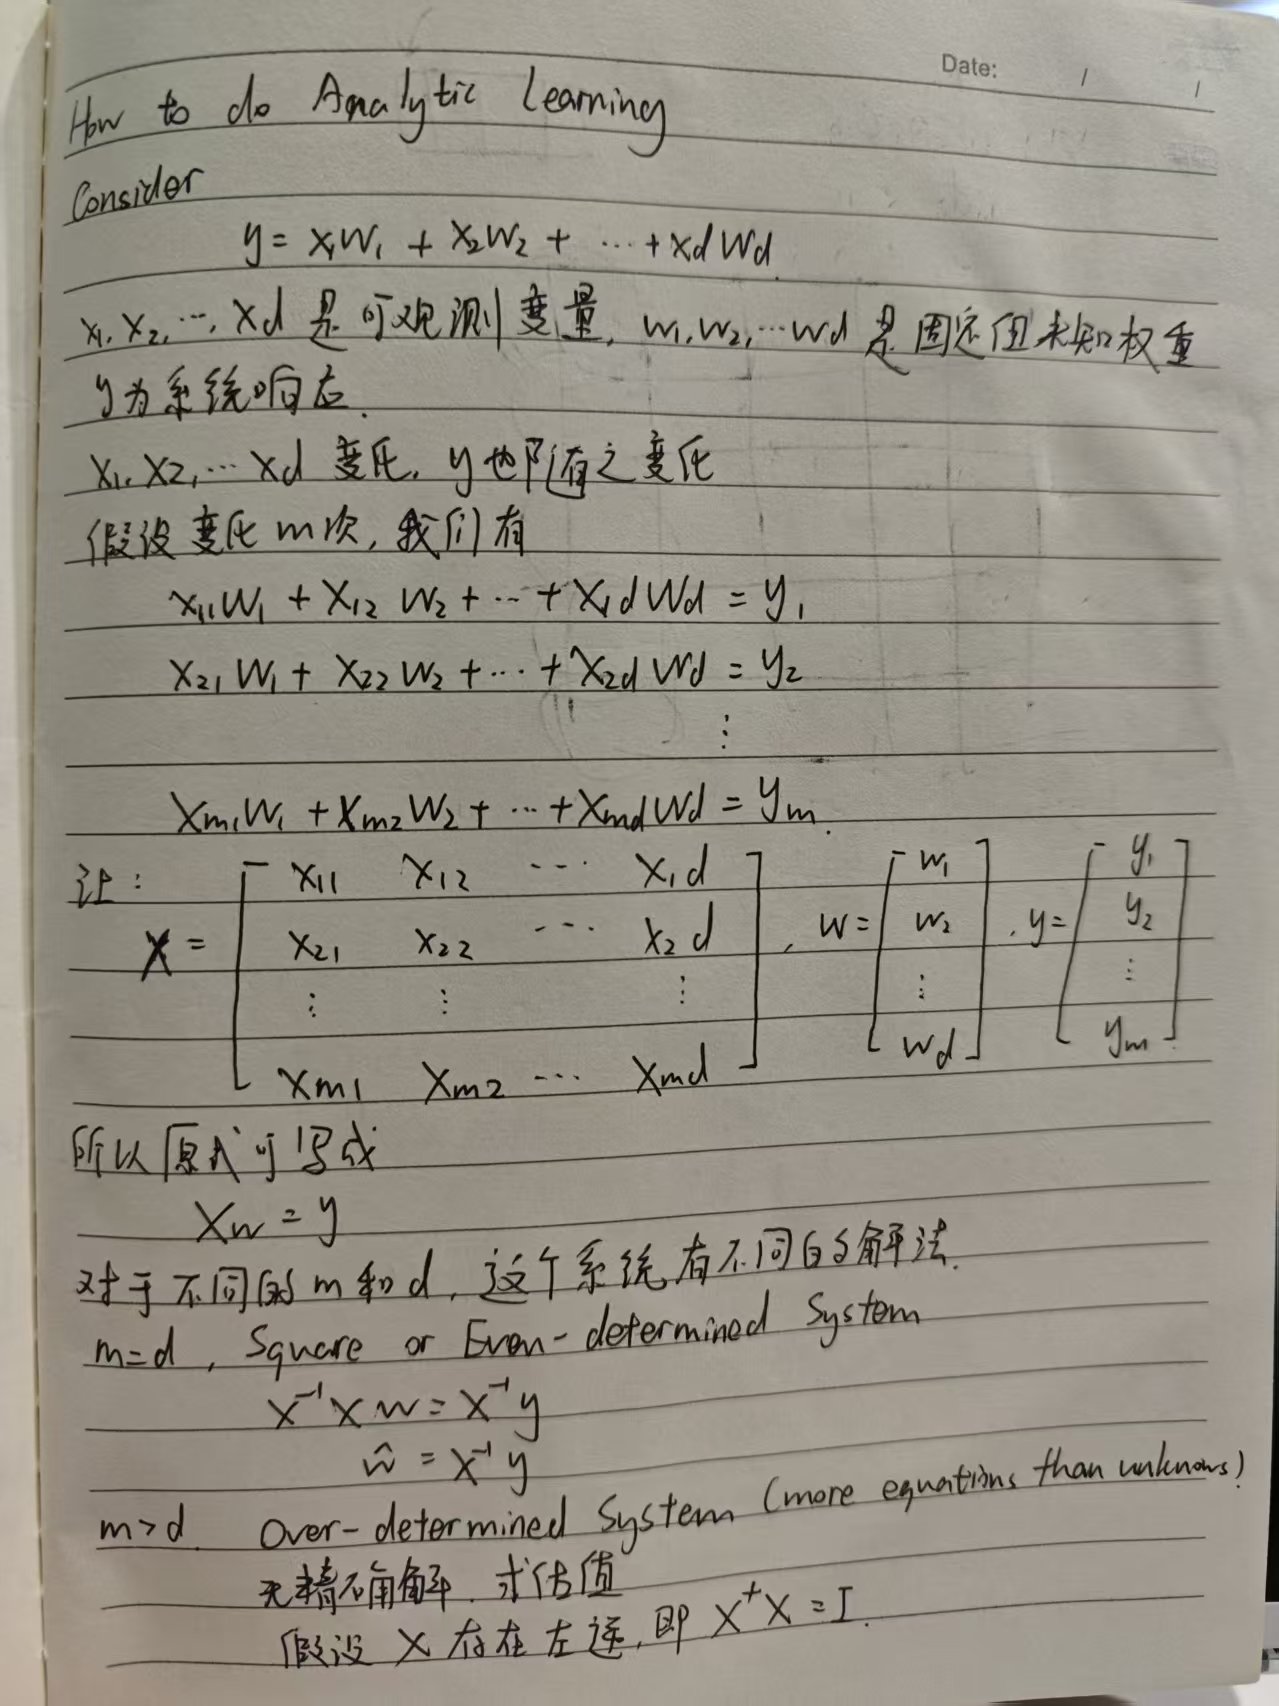 Date: / /
How to do Analytic Learning
Consider
y = x₁w₁ + x₂w₂ + ⋯ + xdwd.
x₁, x₂, ⋯, xd 是可观测变量, w₁, w₂, ⋯ wd 是固定但未知权重
y为系统响应.
x₁, x₂, ⋯ xd 变化, y也随之变化
假设变化m次, 我们有
x₁₁w₁ + x₁₂w₂ + ⋯ + x₁dwd = y₁
x₂₁w₁ + x₂₂w₂ + ⋯ + x₂dwd = y₂
⋮
xm₁w₁ + xm₂w₂ + ⋯ + xmdwd = ym.
让:
X = [ x₁₁ x₁₂ ⋯ x₁d ], w = [ w₁ ], y = [ y₁ ]
x₂₁ x₂₂ ⋯ x₂d w₂ y₂
⋮ ⋮ ⋮ ⋮ ⋮
xm1 xm2 ⋯ xmd wd ym
所以原式可写成
Xw = y
对于不同的m和d, 这个系统有不同的解法.
m=d, Square or Even-determined System
X⁻¹Xw = X⁻¹y
ŵ = X⁻¹y
m>d. Over-determined System (more equations than unknows)
无精确解, 求估值
假设X存在左逆, 即 X⁺X = I.